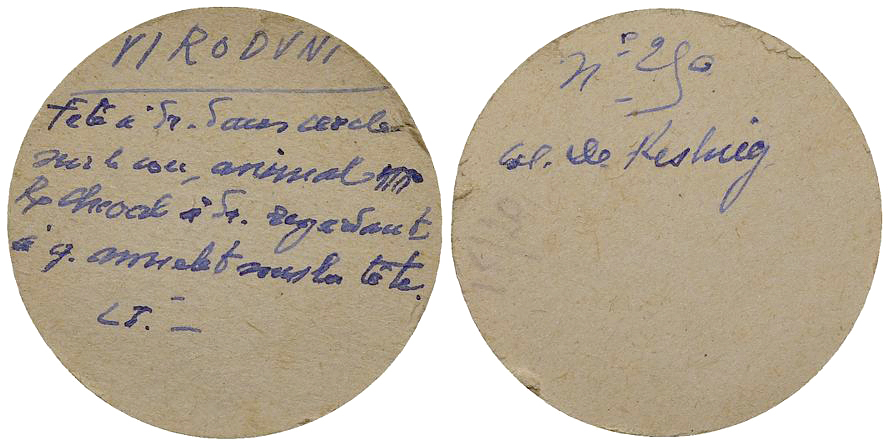 VIRODVNI
Tete à Dr. Dans cercle
sur le cou, animal
Rx Cheval à Dr. regardant
à g. annelet sous la tête.
LT. —
n° 250
col. de Kesling